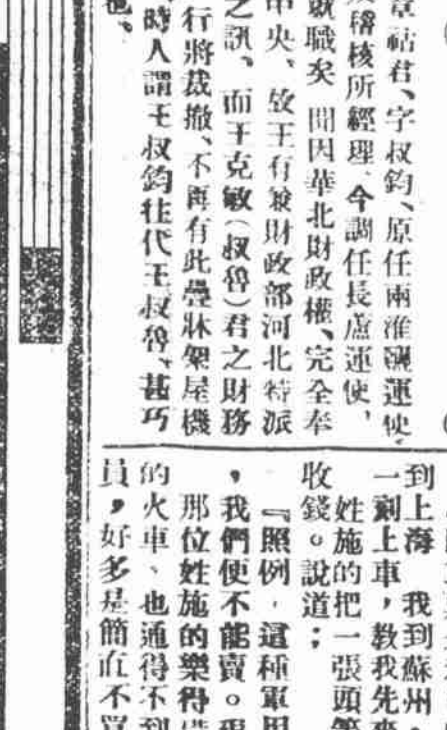 章祜君、字叔鈞、原任兩淮鹽運使、
稽核所經理、今調任長盧運使、
就職矣 聞因華北財政權、完全奉
中央、故王有兼財政部河北特派
之訊、而王克敏(叔魯)君之財務
行將裁撤、不再有此疊牀架屋機
時人謂王叔鈞往代王叔魯、甚巧
也、
到上海 我到蘇州。
一剷上車，教我先來
姓施的把一張頭等
收錢。說道；
『照例，這種軍用
，我們便不能賣。現
那位姓施的樂得
的火車、也通得不到
員，好多是簡直不買